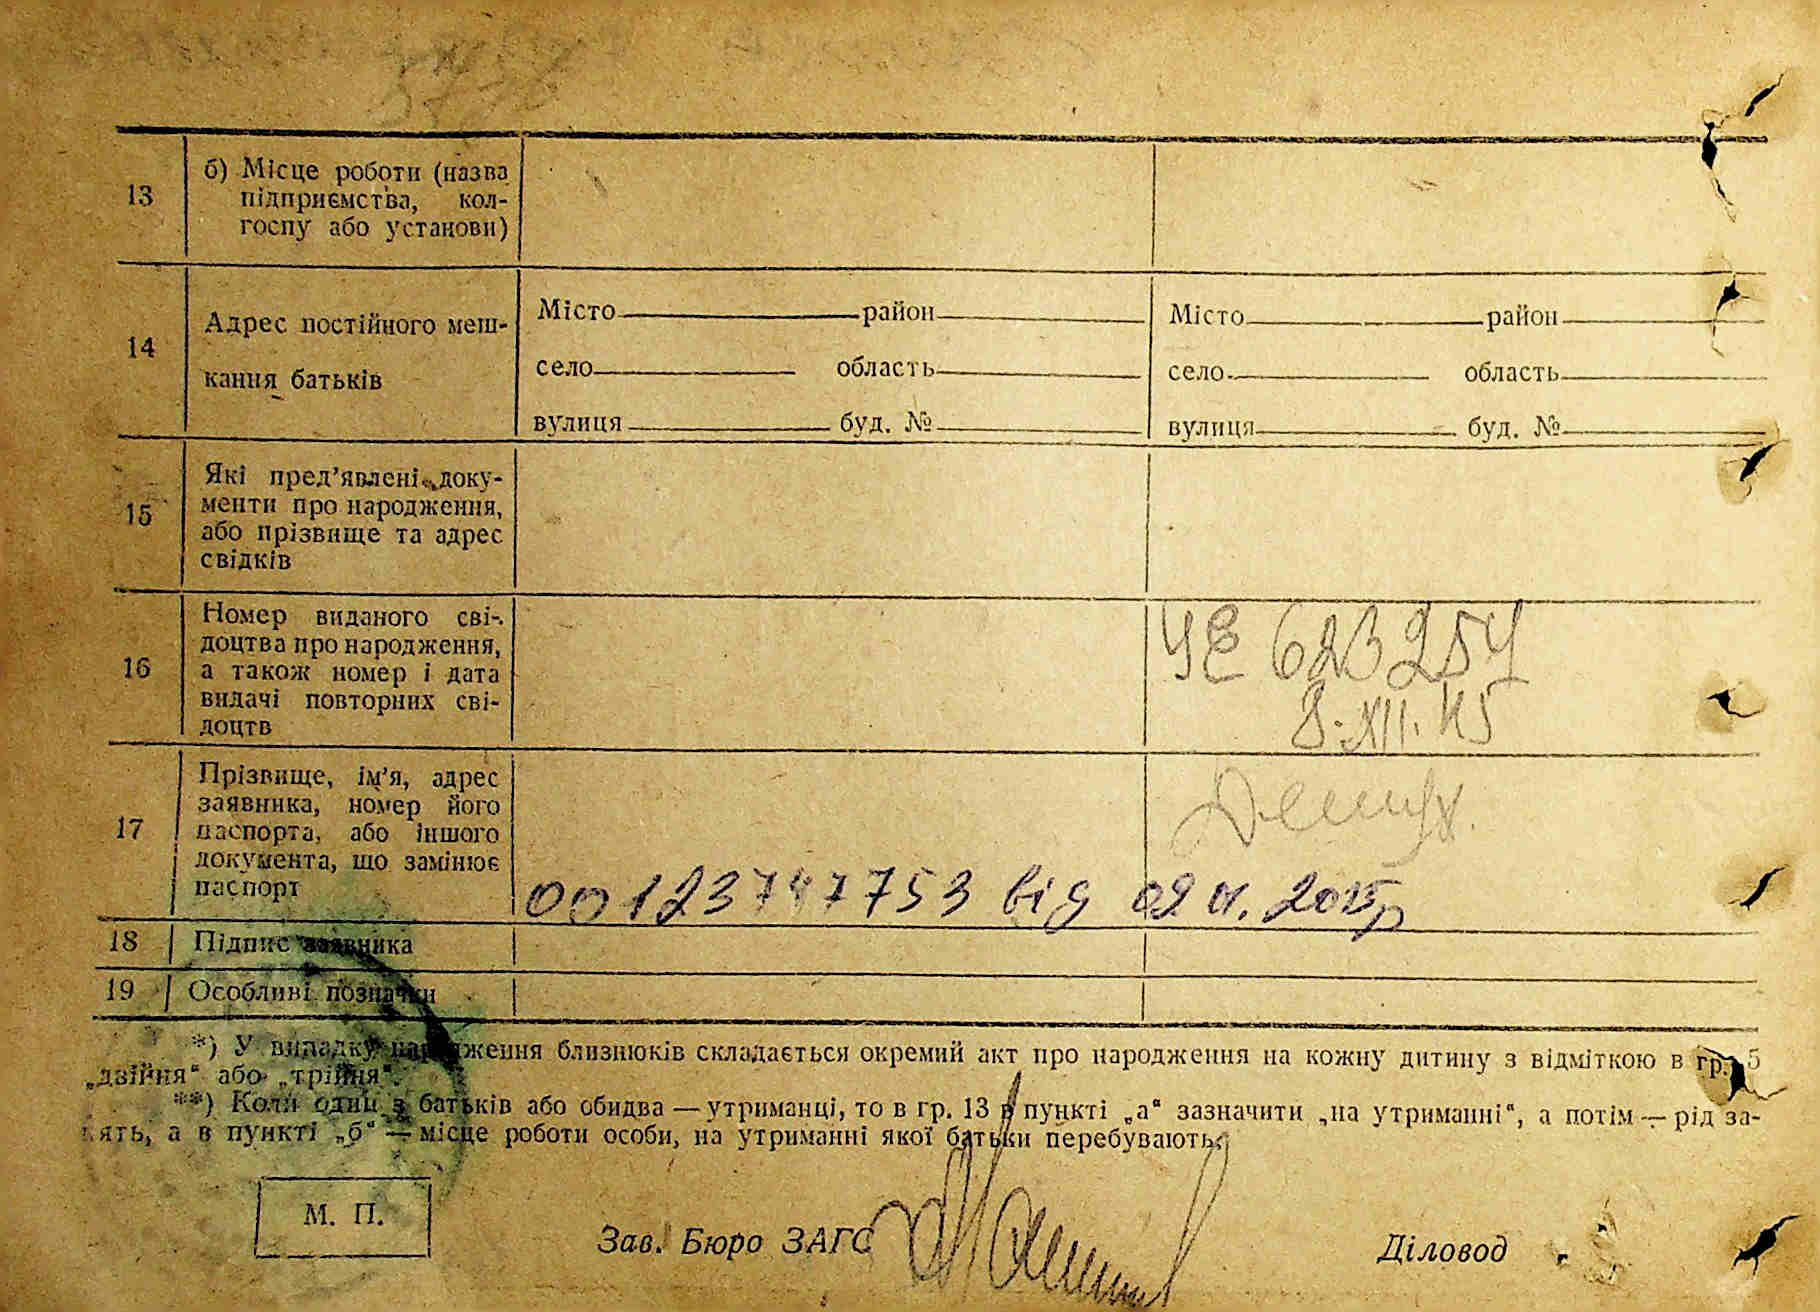 13
б) Місце роботи (назва
підприємства, кол-
госпу або установи)
14
Адрес постійного меш-
кання батьків
Місто район
село область
вулиця буд. №
Місто район
село область
вулиця буд. №
15
Які пред'явлені доку-
менти про народження,
або прізвище та адрес
свідків
16
Номер виданого сві-
доцтва про народження,
а також номер і дата
видачі повторних сві-
доцтв
УЕ 623257
8.XII.45
17
Прізвище, ім'я, адрес
заявника, номер його
паспорта, або іншого
документа, що замінює
паспорт
00123747753 від 02 2015р
18 Підпис заявника
19 Особливі позначки
*) У випадку народження близнюків складається окремий акт про народження на кожну дитину з відміткою в гр. 5
„двійня“ або „трійня“.
**) Коли один з батьків або обидва — утриманці, то в гр. 13 в пункті „а“ зазначити „на утриманні“, а потім — рід за-
нять, а в пункті „б“ — місце роботи особи, на утриманні якої батьки перебувають.
М. П.
Зав. Бюро ЗАГС
Діловод